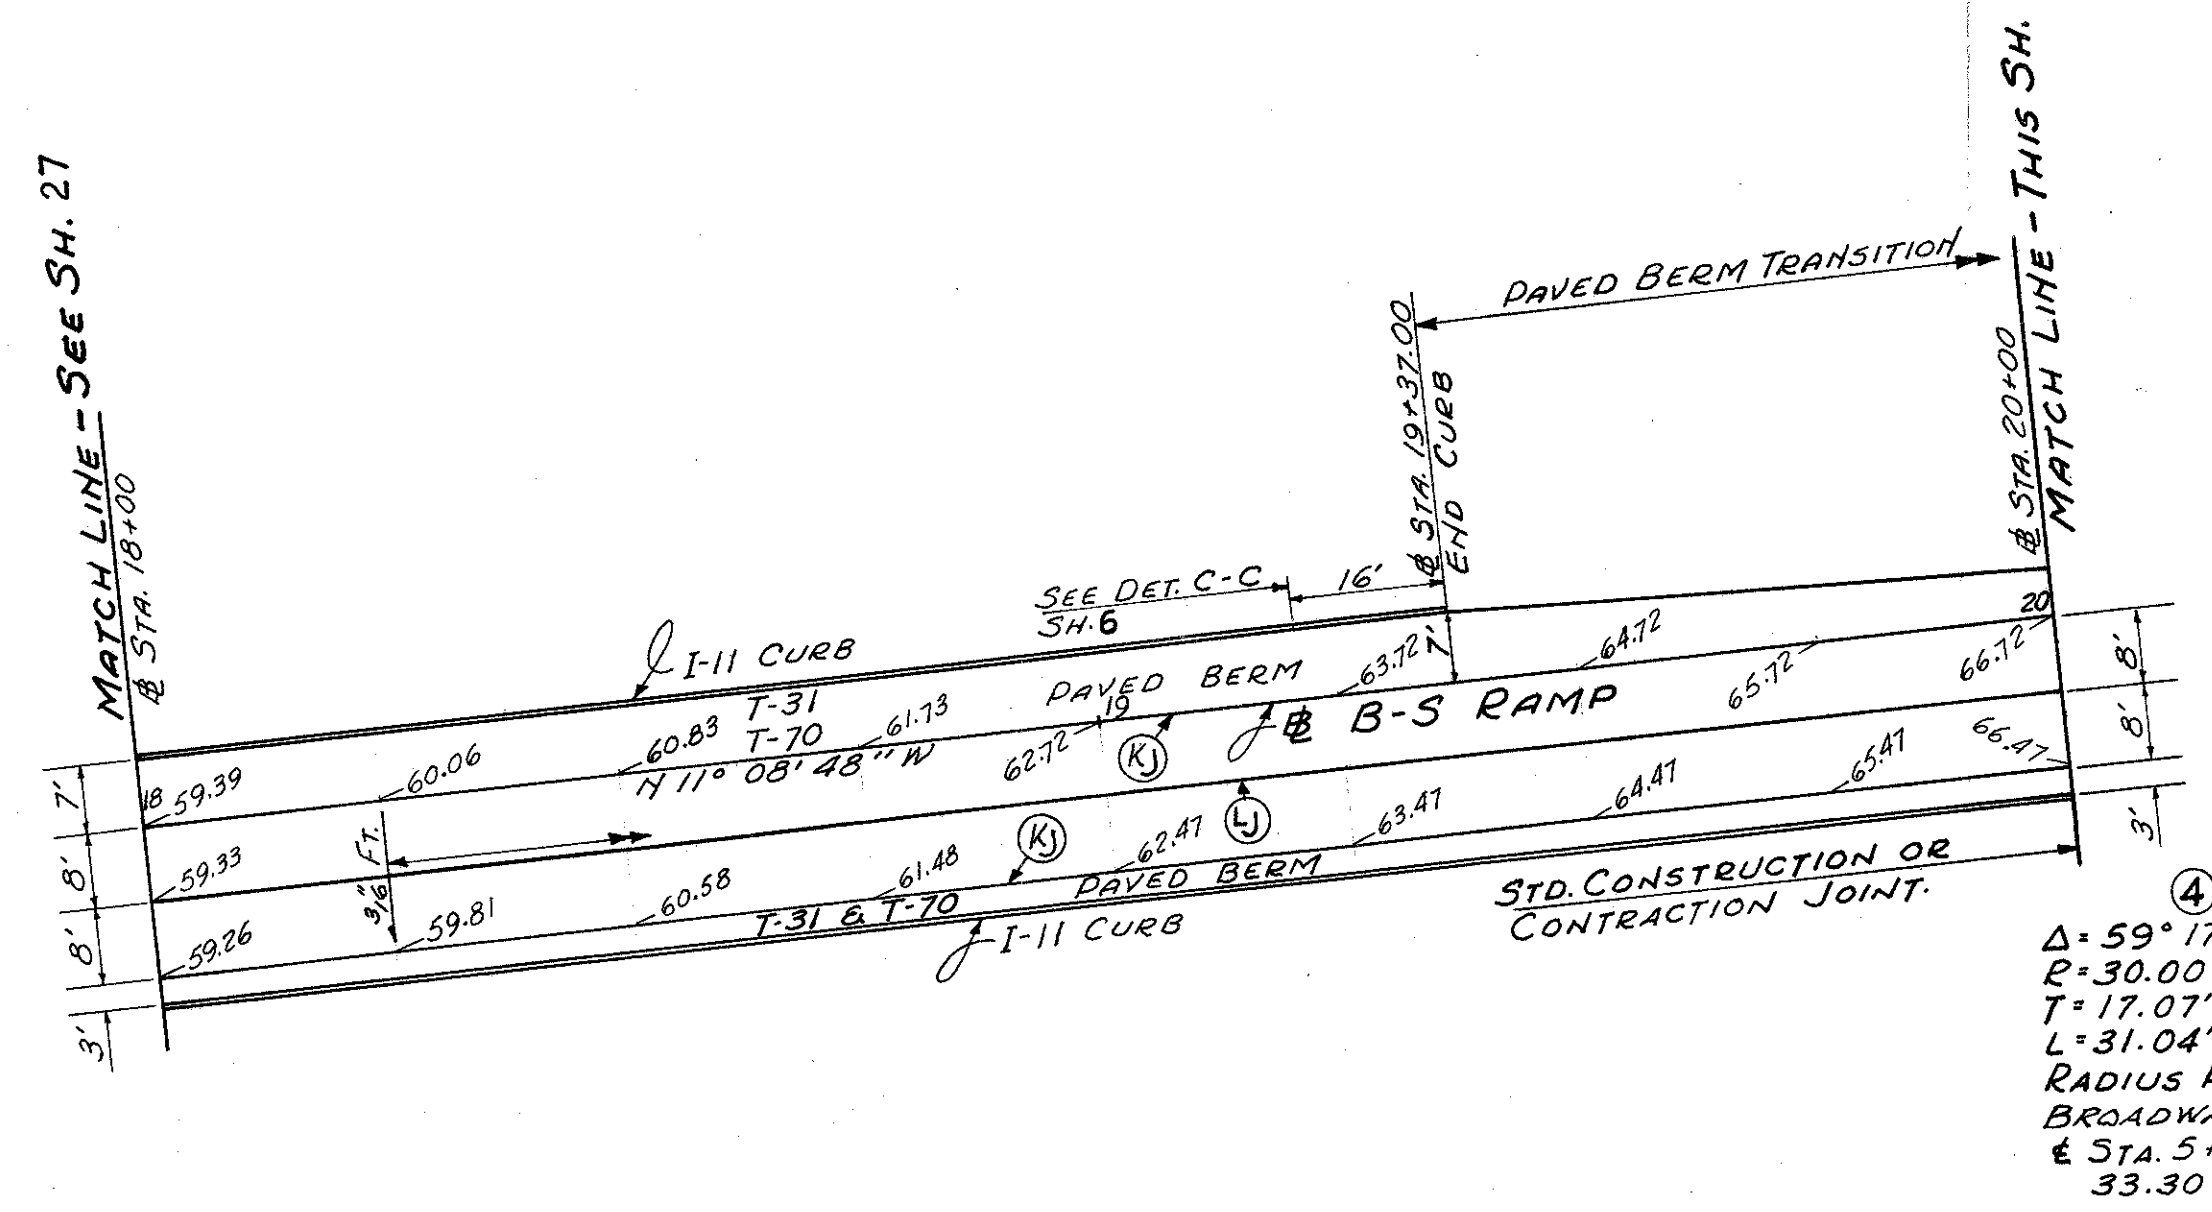 MATCH LINE - SEE SH. 27
℄ STA. 18+00
MATCH LINE - THIS SH.
℄ STA. 20+00
PAVED BERM TRANSITION
℄ STA. 19+37.00
END CURB
SEE DET. C-C
SH. 6
16'
7'
I-11 CURB
T-31
T-70
PAVED BERM
N 11° 08' 48" W
℄ B-S RAMP
18
19
20
59.39
60.06
60.83
61.73
62.72
63.72
64.72
65.72
66.72
KJ
LJ
KJ
59.33
3/16" FT.
59.26
59.81
60.58
61.48
62.47
63.47
64.47
65.47
66.47
PAVED BERM
T-31 & T-70
I-11 CURB
STD. CONSTRUCTION OR
CONTRACTION JOINT.
7'
8'
8'
3'
8'
8'
3'
4
Δ = 59° 17
R = 30.00
T = 17.07'
L = 31.04'
RADIUS
BROADWA
℄ STA. 5+
33.30